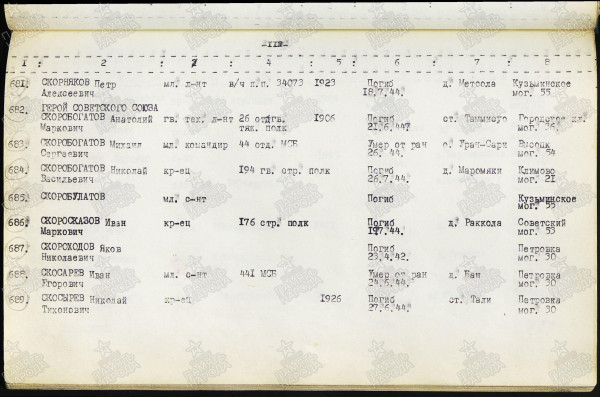 1 : 2 : 3 : 4 : 5 : 6 : 7 : 8
681. СКОРНЯКОВ Петр мл. л-нт в/ч п.п. 34073 1923 Погиб д. Метсола Кузьминское
Алексеевич 18.7.44. мог. 55
682. ГЕРОЙ СОВЕТСКОГО СОЮЗА
СКОРОБОГАТОВ Анатолий гв. тех. л-нт 26 отд гв. 1906 Погиб ст. Таммисуо Городское кл.
Маркович тяж. полк 21.6.44г. мог. 36.
683. СКОРОБОГАТОВ Михаил мл. командир 44 отд. МСБ Умер от ран о. Уран-Сари Высоцк
Сергеевич 26. 44. мог. 54
684. СКОРОБОГАТОВ Николай кр-ец 194 гв. стр. полк Погиб д. Маромяки Климово
Васильевич 26.7.44. мог. 21
685. СКОРОБУЛАТОВ мл. с-нт Погиб Кузьминское
мог. 55
686. СКОРОСКАЗОВ Иван кр-ец 176 стр. полк Погиб д. Раккола Советский
Маркович 44. мог. 53
687. СКОРОХОДОВ Яков Погиб Петровка
Николаевич 23.4.42. мог. 30
688. СКОСАРЕВ Иван мл. с-нт 441 МСБ Умер от ран д. Петровка
Егорович 24.6.44. мог. 30
689. СКОСЫРЕВ Николай кр-ец 1926 Погиб ст. Тали Петровка
Тихонович 27.6.44. мог. 30